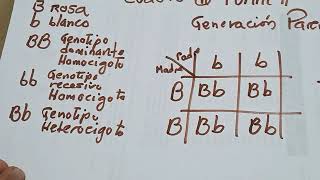 Cuadro de Punnett
B ROSA
b blanco
Generación Paren
BB Genotipo
dominante
Homocigoto
bb Genotipo
recesivo
Homocigoto
Bb Genotipo
Heterocigoto
Padre
Madre
b b
B Bb Bb
B Bb Bb